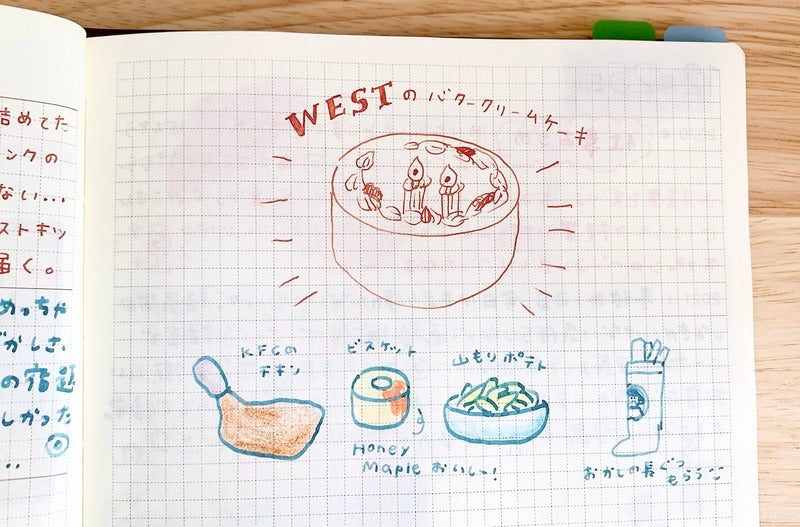 詰めてた
ンクの
ない...
ストキッ
届く。
めっちゃ
がかしさ、
の宿題
しかった
WESTのバタークリームケーキ
KFCの
チキン
ビスケット
Honey
Maple おいしー!
山もりポテト
おかしの長ぐつ
もらう